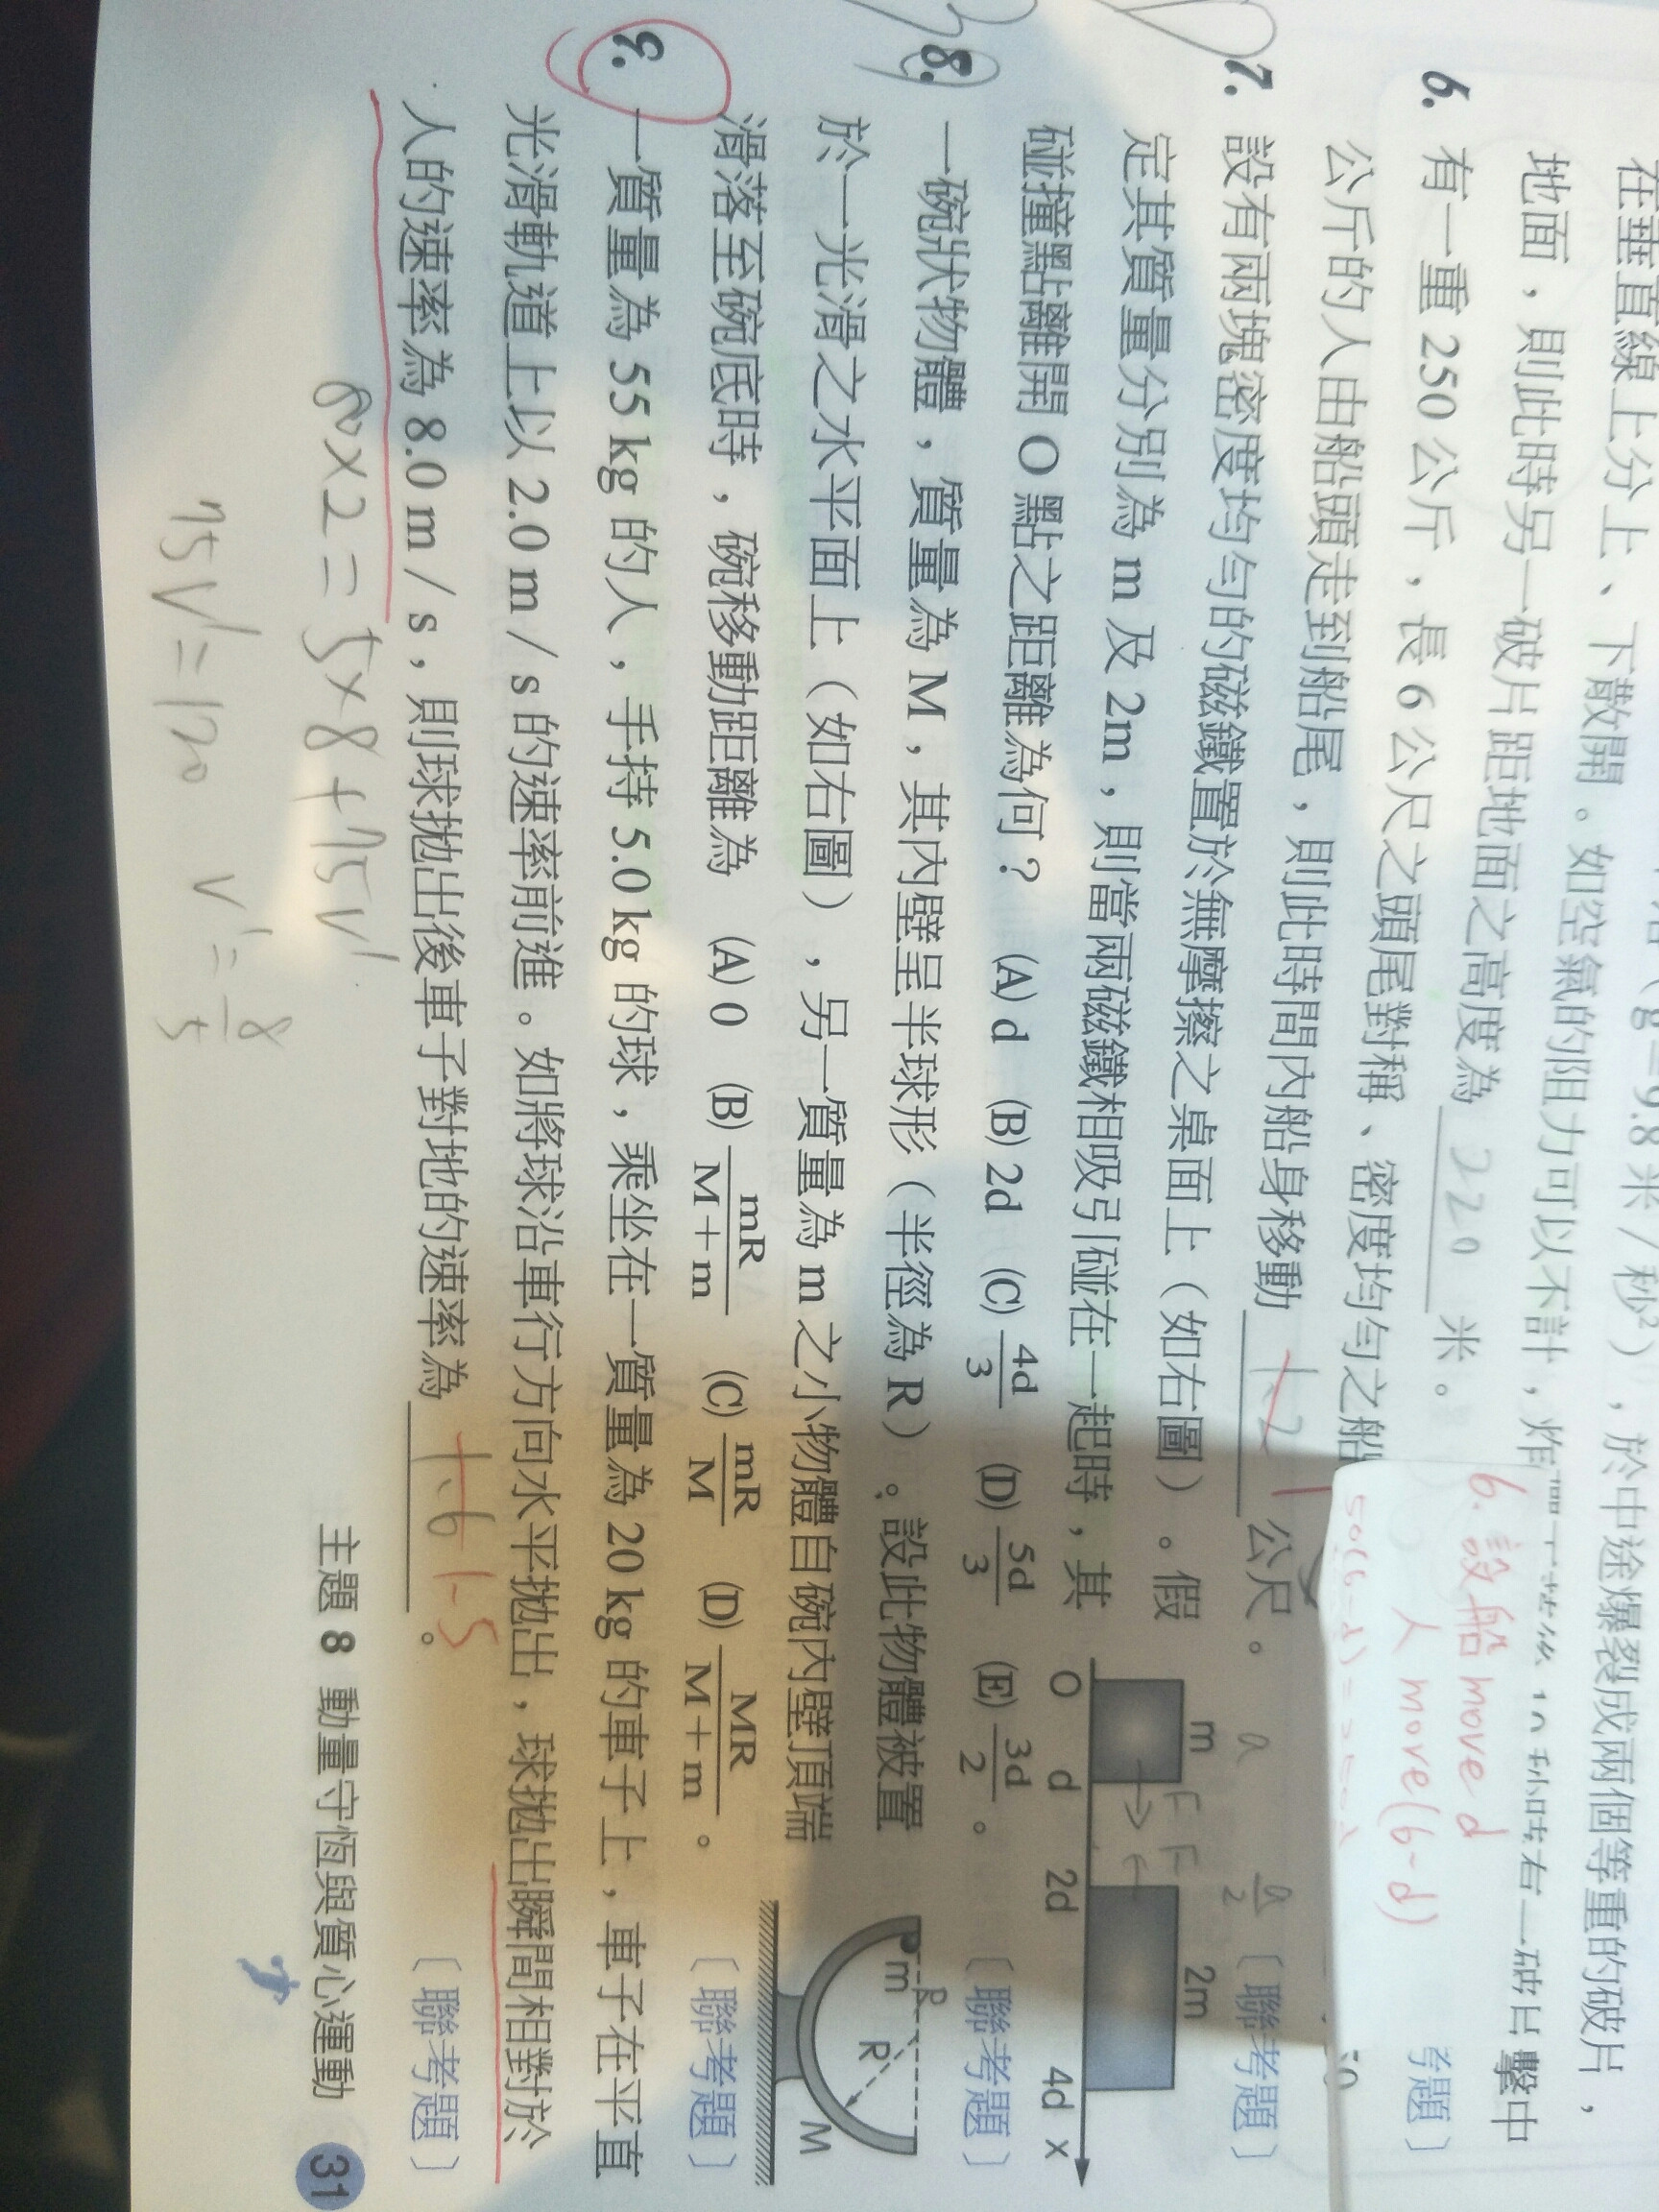 在垂直線上分上、下散開。如空氣的阻力可以不計,炸
於中途爆裂成兩個等重的破片,
地面,則此時另一破片距地面之高度為 220 米。
6. 有一重 250 公斤,長 6 公尺之頭尾對稱、密度均勻之船
公斤的人由船頭走到船尾,則此時間內船身移動 1.2 公尺。〔聯考題〕
6. 設船 move d
人 move (6-d)
7. 設有兩塊密度均勻的磁鐵置於無摩擦之桌面上(如右圖)。假
定其質量分別為 m 及 2m,則當兩磁鐵相吸引碰在一起時,其
碰撞點離開 O 點之距離為何? (A) d (B) 2d (C) 4d/3 (D) 5d/3 (E) 3d/2 。〔聯考題〕
a a/2
m 2m
F F
O d 2d 4d x
8. 一碗狀物體,質量為 M,其內壁呈半球形(半徑為 R)。設此物體被置
於一光滑之水平面上(如右圖),另一質量為 m 之小物體自碗內壁頂端
滑落至碗底時,碗移動距離為 (A) 0 (B) mR/M+m (C) mR/M (D) MR/M+m 。〔聯考題〕
m R R M
9. 一質量為 55 kg 的人,手持 5.0 kg 的球,乘坐在一質量為 20 kg 的車子上,車子在平直
光滑軌道上以 2.0 m / s 的速率前進。如將球沿車行方向水平拋出,球拋出瞬間相對於
人的速率為 8.0 m / s,則球拋出後車子對地的速率為 1.6 1.5 。〔聯考題〕
80×2=5×8+75V'
75V'=120 V'=8/5
主題 8 動量守恆與質心運動 31